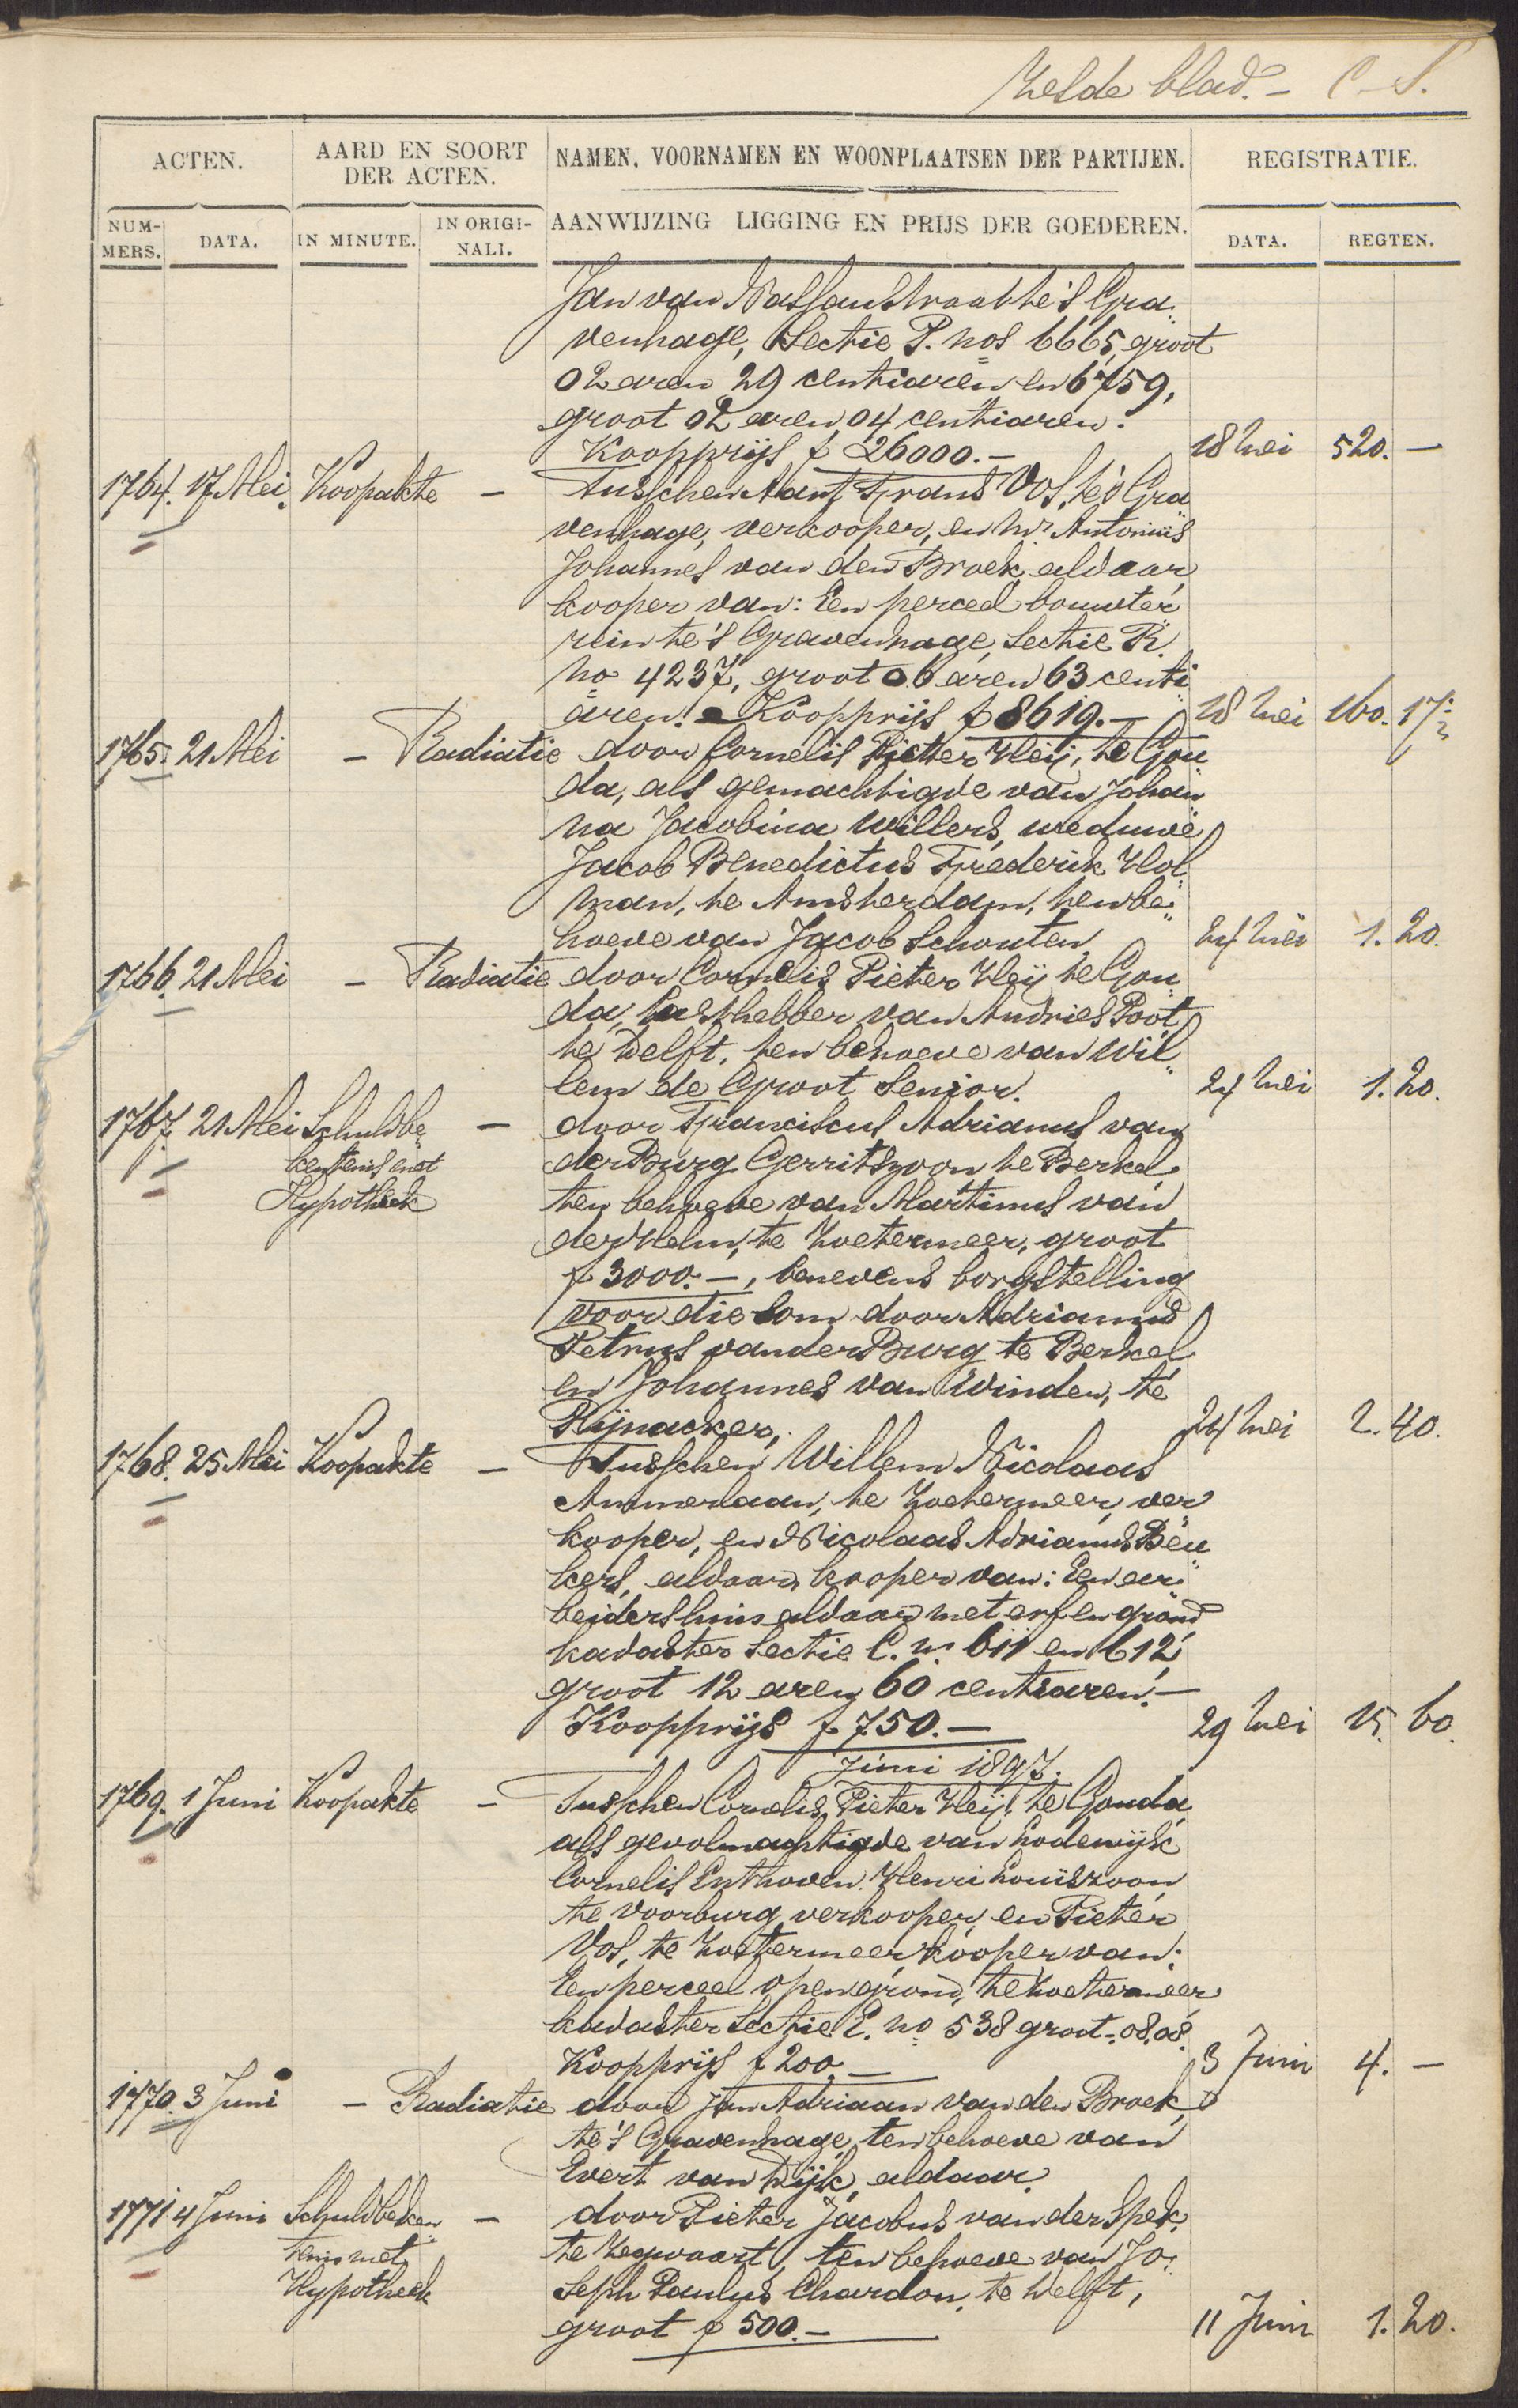 Zesde blad. - C. S.
ACTEN.
AARD EN SOORT DER ACTEN.
NAMEN, VOORNAMEN EN WOONPLAATSEN DER PARTIJEN.
REGISTRATIE.
NUM-MERS.
DATA.
IN MINUTE.
IN ORIGI-NALI.
AANWIJZING LIGGING EN PRIJS DER GOEDEREN.
DATA.
REGTEN.
Jan van Nassaustraat te 's Gra
venhage, Sectie P. nos 6665, groot
02 aren 29 centiaren en 6759,
groot 02 aren 04 centiaren.
Koopprijs f 26000.- 18 Mei 520. -
1764. 17 Mei. Koopakte - Tusschen Frans Vos, te 's Gra
venhage, verkooper, en Mr Antonius
Johannes van den Broek aldaar,
kooper van: Een perceel bouwter
rein te 's Gravenhage, Sectie R.
no 4237, groot 06 aren 63 centi
aren. Koopprijs f 8619.- 18 Mei 160. 17
1765. 21 Mei - Radiatie door Cornelis Pieter Heij, te Gou
da, als gemachtigde van Johan
na Jacobina Willers, weduwe
Jacob Benedictus Frederik Hol
man, te Amsterdam, ten be
hoeve van Jacob Schouten. 24 Mei 1. 20.
1766. 21 Mei - Radiatie door Cornelis Pieter Heij te Gou
da, lasthebber van Andries Poot,
te Delft, ten behoeve van Wil
lem de Groot Senior. 24 Mei 1. 20.
1767. 21 Mei Schuldbe - door Franciscus Adrianus van
kentenis met der Burg Gerritszoon te Berkel,
Hypotheek ten behoeve van Martinus van
der Helm, te Zoetermeer, groot
f 3000.-, benevens borgstelling
voor die som door Adrianus
Petrus van der Burg te Berkel
en Johannes van Winden, te
Pijnacker. 24 Mei 2. 40.
1768. 25 Mei Koopakte - Tusschen Willem Nicolaas
Ammerlaan, te Zoetermeer, ver
kooper, en Nicolaas Adrianus Beu
kers, aldaar, kooper van: Een ar
beidershuis aldaar met erf en grond
kadaster Sectie C. n. 611 en 612,
groot 12 aren 60 centiaren.-
Koopprijs f 750.- 29 Mei 15. 60.
Juni 1897.
1769. 1 Juni Koopakte - Tusschen Cornelis Pieter Heij, te Gouda,
als gevolmachtigde van Lodewijk
Cornelis Enthoven Henri Louiszoon
te Voorburg, verkooper, en Pieter
Vos, te Zoetermeer, kooper van:
Een perceel open grond, te Zoetermeer
kadaster Sectie E. no 538 groot -.08.08.
Koopprijs f 200.- 3 Juni 4. -
1770. 3 Juni - Radiatie door Jan Adriaan van den Broek,
te 's Gravenhage, ten behoeve van
Evert van Dijk, aldaar.
1771 4 Juni Schuldbeken - door Pieter Jacobus van der Spek,
tenis met te Zegwaart, ten behoeve van Jo
Hypotheek seph Paulus Chardon, te Delft,
groot f 500.- 11 Juni 1. 20.